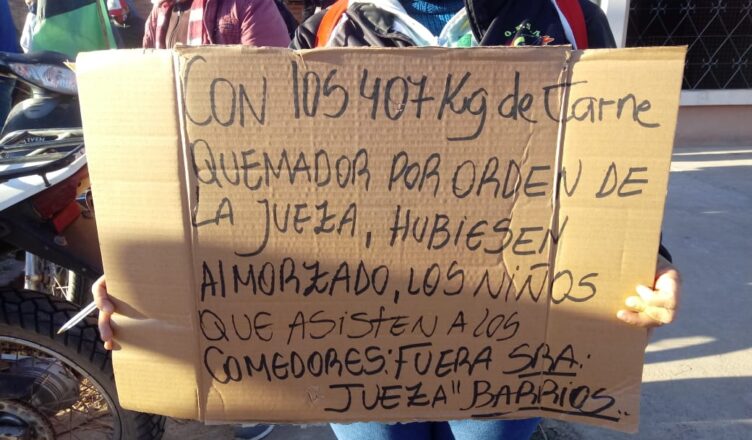 CON los 407 Kg de Carne
QUEMADOR POR ORDEN DE
LA JUEZA, HUBIESEN
AlMORZADO, LOS NIÑOS
QUE ASISTEN A LOS
COMEDORES: FUERA SRA:
JUEZA" BARRIOS..